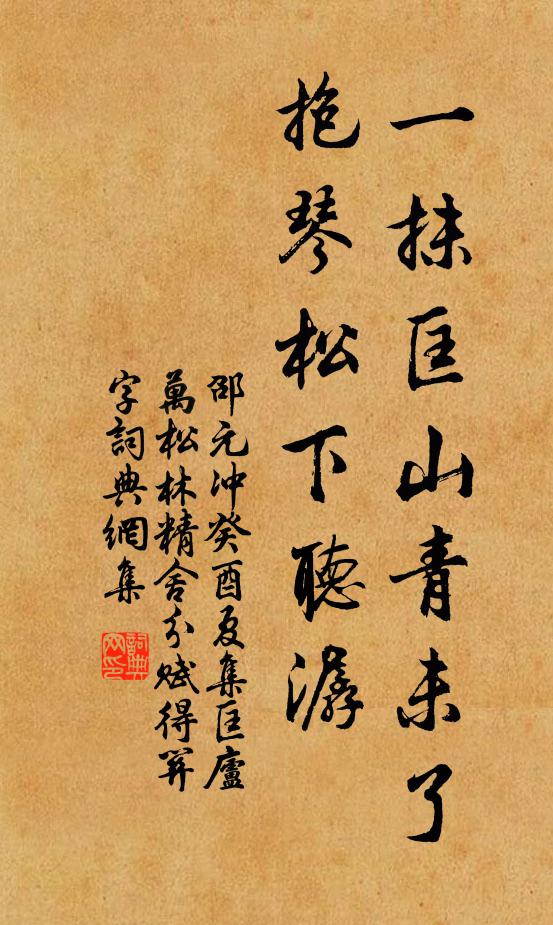 一抹匡山青未了
抱琴松下聽潺
邵元冲癸酉夏集匡廬
萬松林精舍分賦得
字詞典網集
詞典
網印